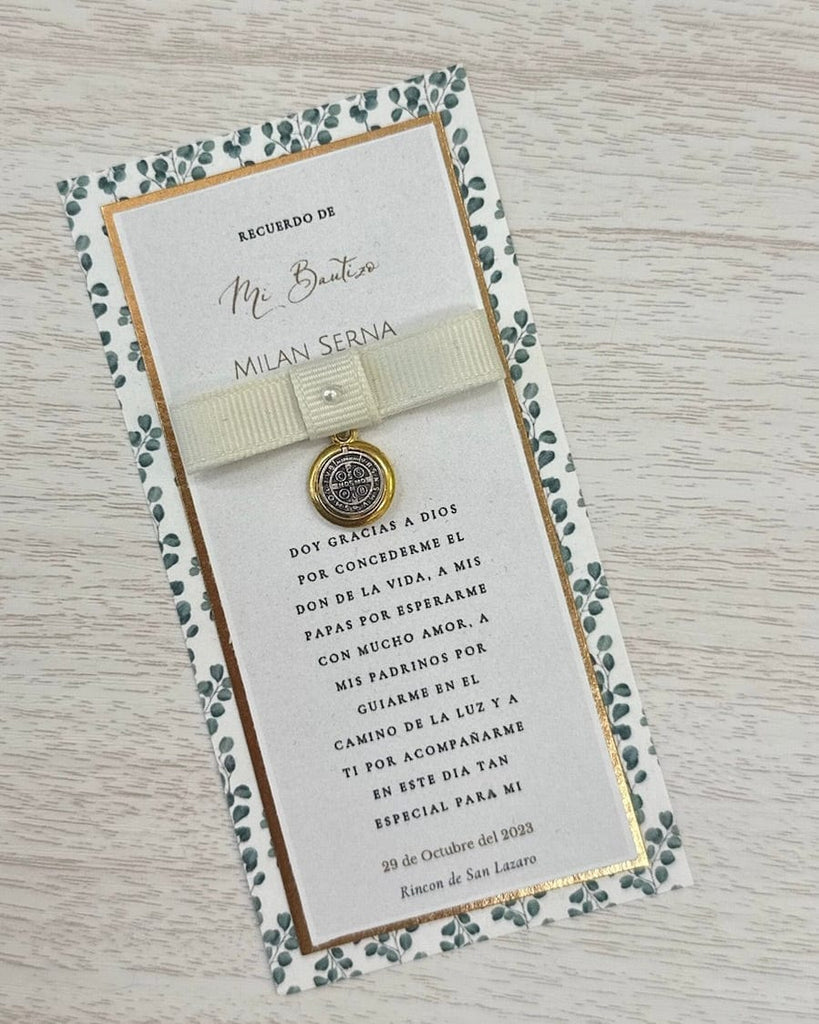 RECUERDO DE
Mi Bautizo
MILAN SERNA
DOY GRACIAS A DIOS
POR CONCEDERME EL
DON DE LA VIDA, A MIS
PAPAS POR ESPERARME
CON MUCHO AMOR, A
MIS PADRINOS POR
GUIARME EN EL
CAMINO DE LA LUZ Y A
TI POR ACOMPAÑARME
EN ESTE DIA TAN
ESPECIAL PARA MI
29 de Octubre del 2023
Rincon de San Lazaro